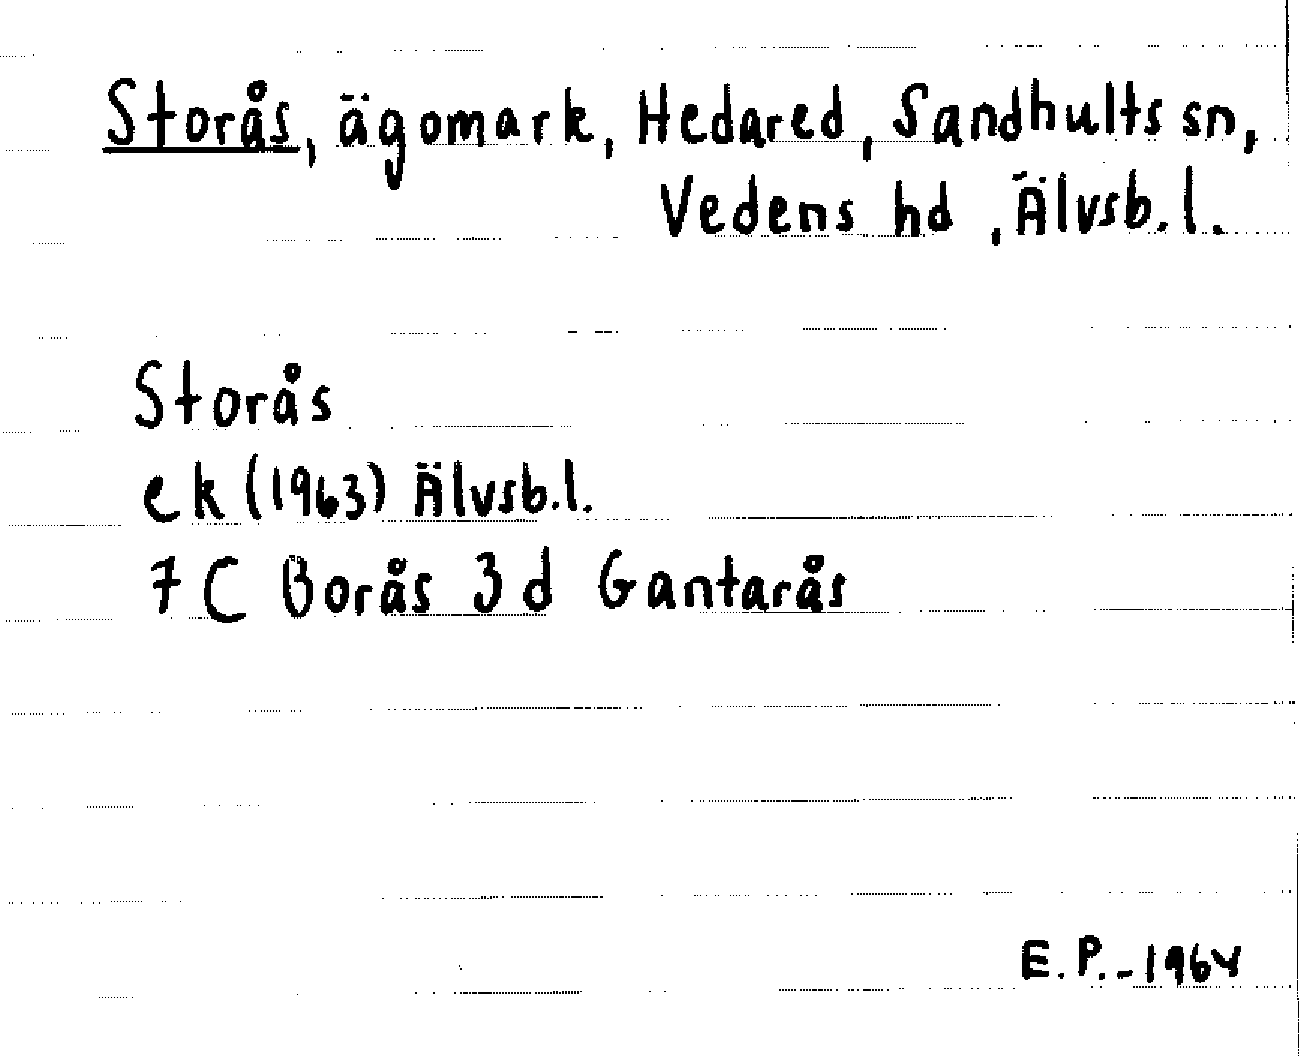 Storås, ägomark, Hedared, Sandhults sn,
Vedens hd, Älvsb.l.
Storås
ek (1963) Älvsb.l.
7 C Borås 3 d Gantarås
E.P.-1964